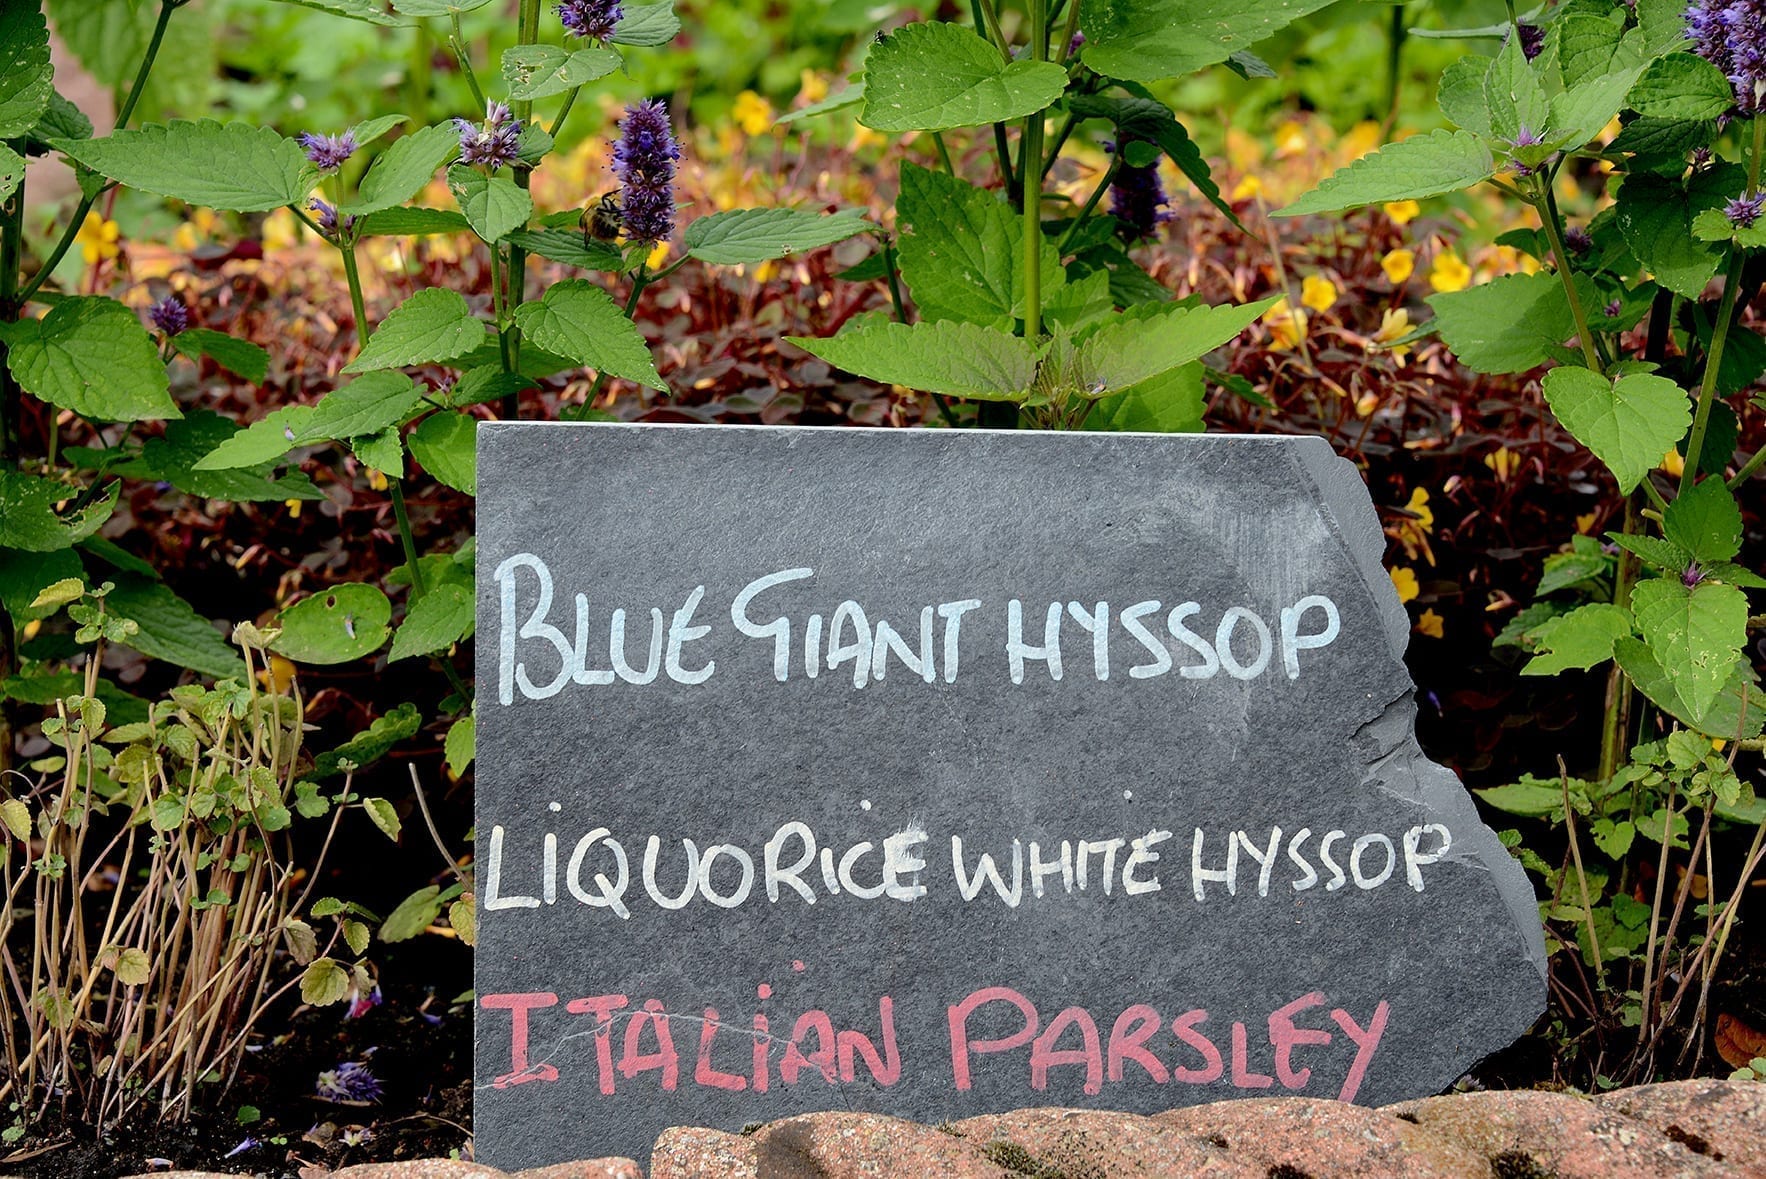 BLUE GIANT HYSSOP
LiQUORiCE WHiTE HYSSOP
ITALiAN PARSLEY